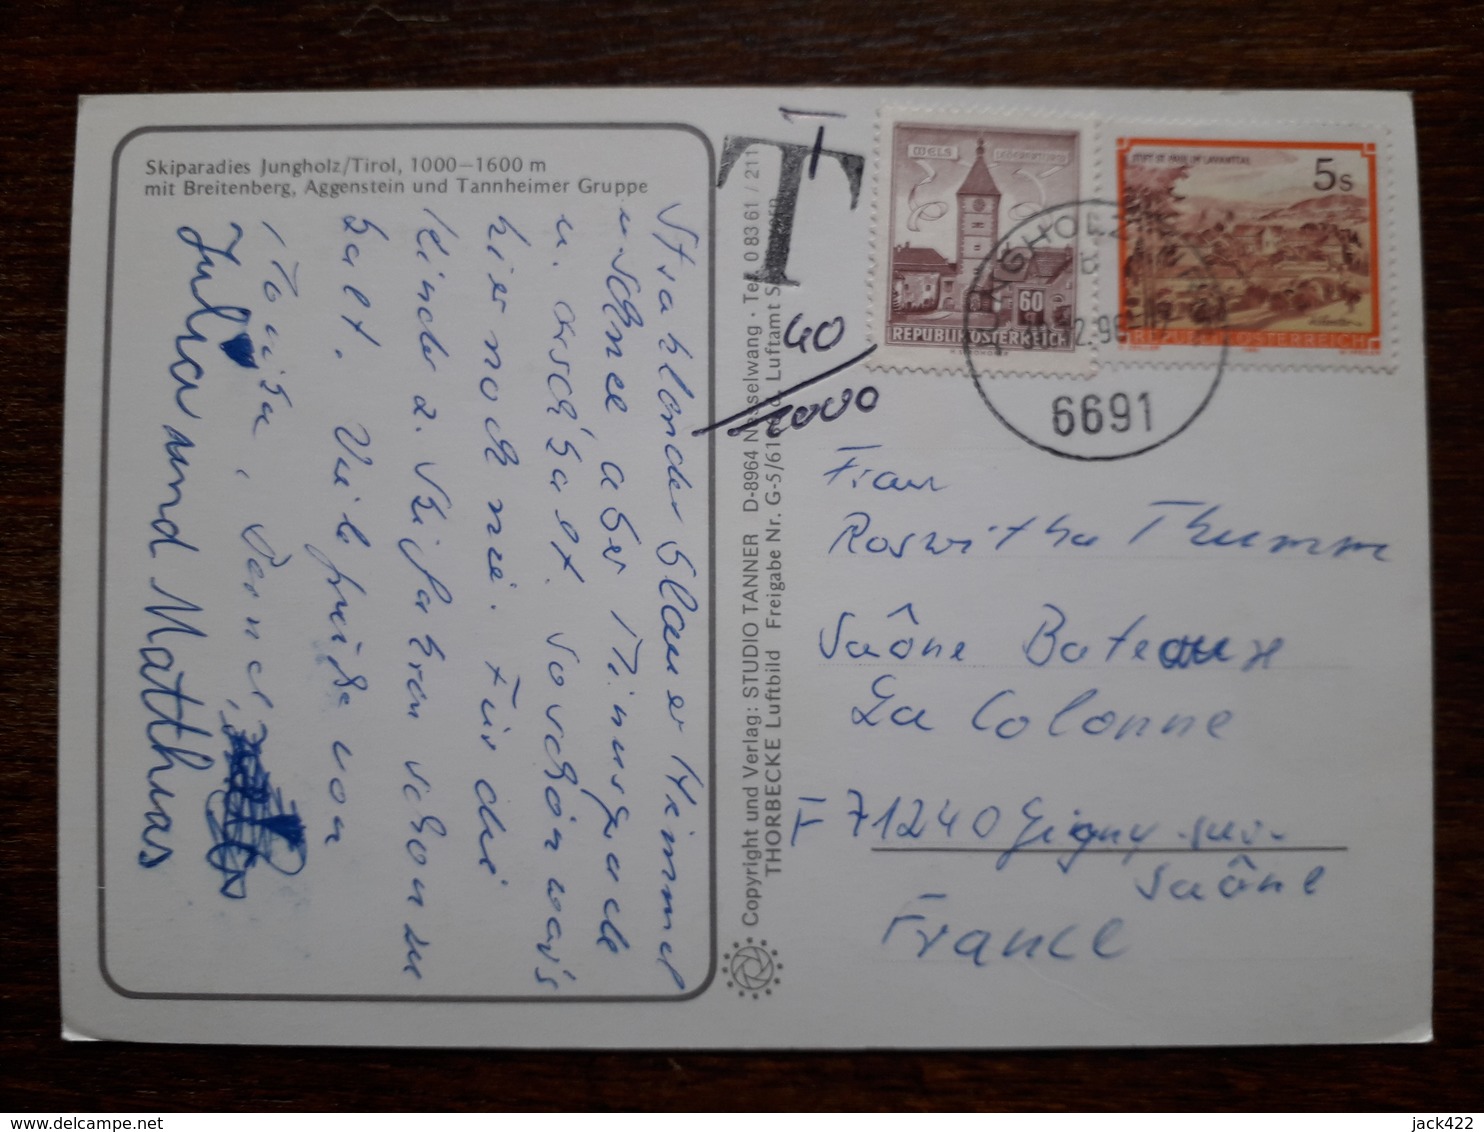 Skiparadies Jungholz/Tirol, 1000–1600 m
mit Breitenberg, Aggenstein und Tannheimer Gruppe
Strahlender blauer Himmel
u. Schnee aber Minusgrade
u. arschkalt. So schön war's
hier noch nie. Für die
Kinder z. Skifahren schon zu
kalt. Viele Grüße von
Julia und Matthias
Copyright und Verlag: STUDIO TANNER D-8964 Nesselwang · Tel. 0 83 61 / 211
THORBECKE Luftbild Freigabe Nr. G-5/61 Luftamt
T
T
40
2000
WELS
60
REPUBLIK ÖSTERREICH
STIFT ST. PAUL IM LAVANTTAL
5s
REPUBLIK ÖSTERREICH
JUNGHOLZ
6691
Frau
Roswitha Thumm
Saône Bateaux
La Colonne
F 71240 Gigny-sur-
Saône
France
jack422